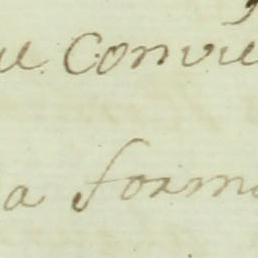 ue convie
a forma